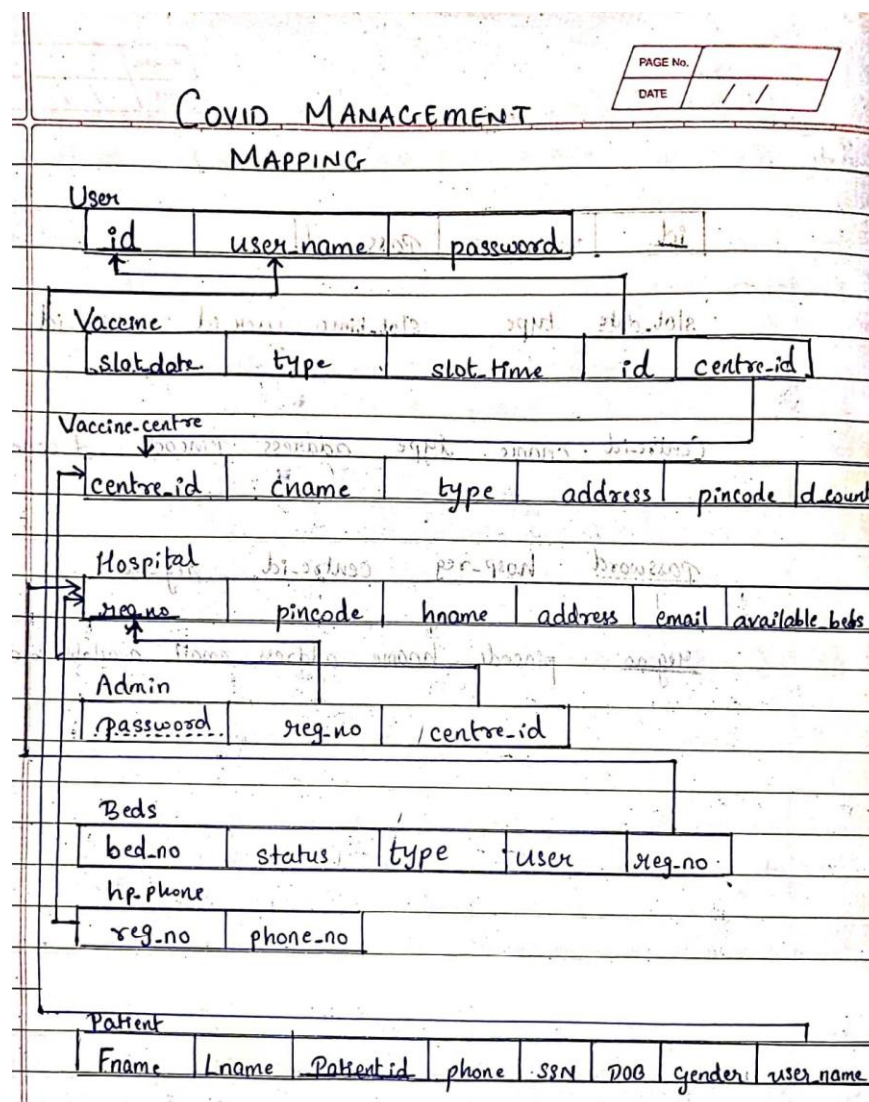 PAGE No.
DATE / /
COVID MANAGEMENT
MAPPING
User
id user_name password
Vaccine
slot_date type slot_time id centre_id
Vaccine-centre
centre_id cname type address pincode d_count
Hospital
reg_no pincode hname address email available_bebs
Admin
password reg_no centre_id
Beds
bed_no status type user reg_no
hp-phone
reg_no phone_no
Patient
Fname Lname Patient id phone SSN DOB Gender user_name